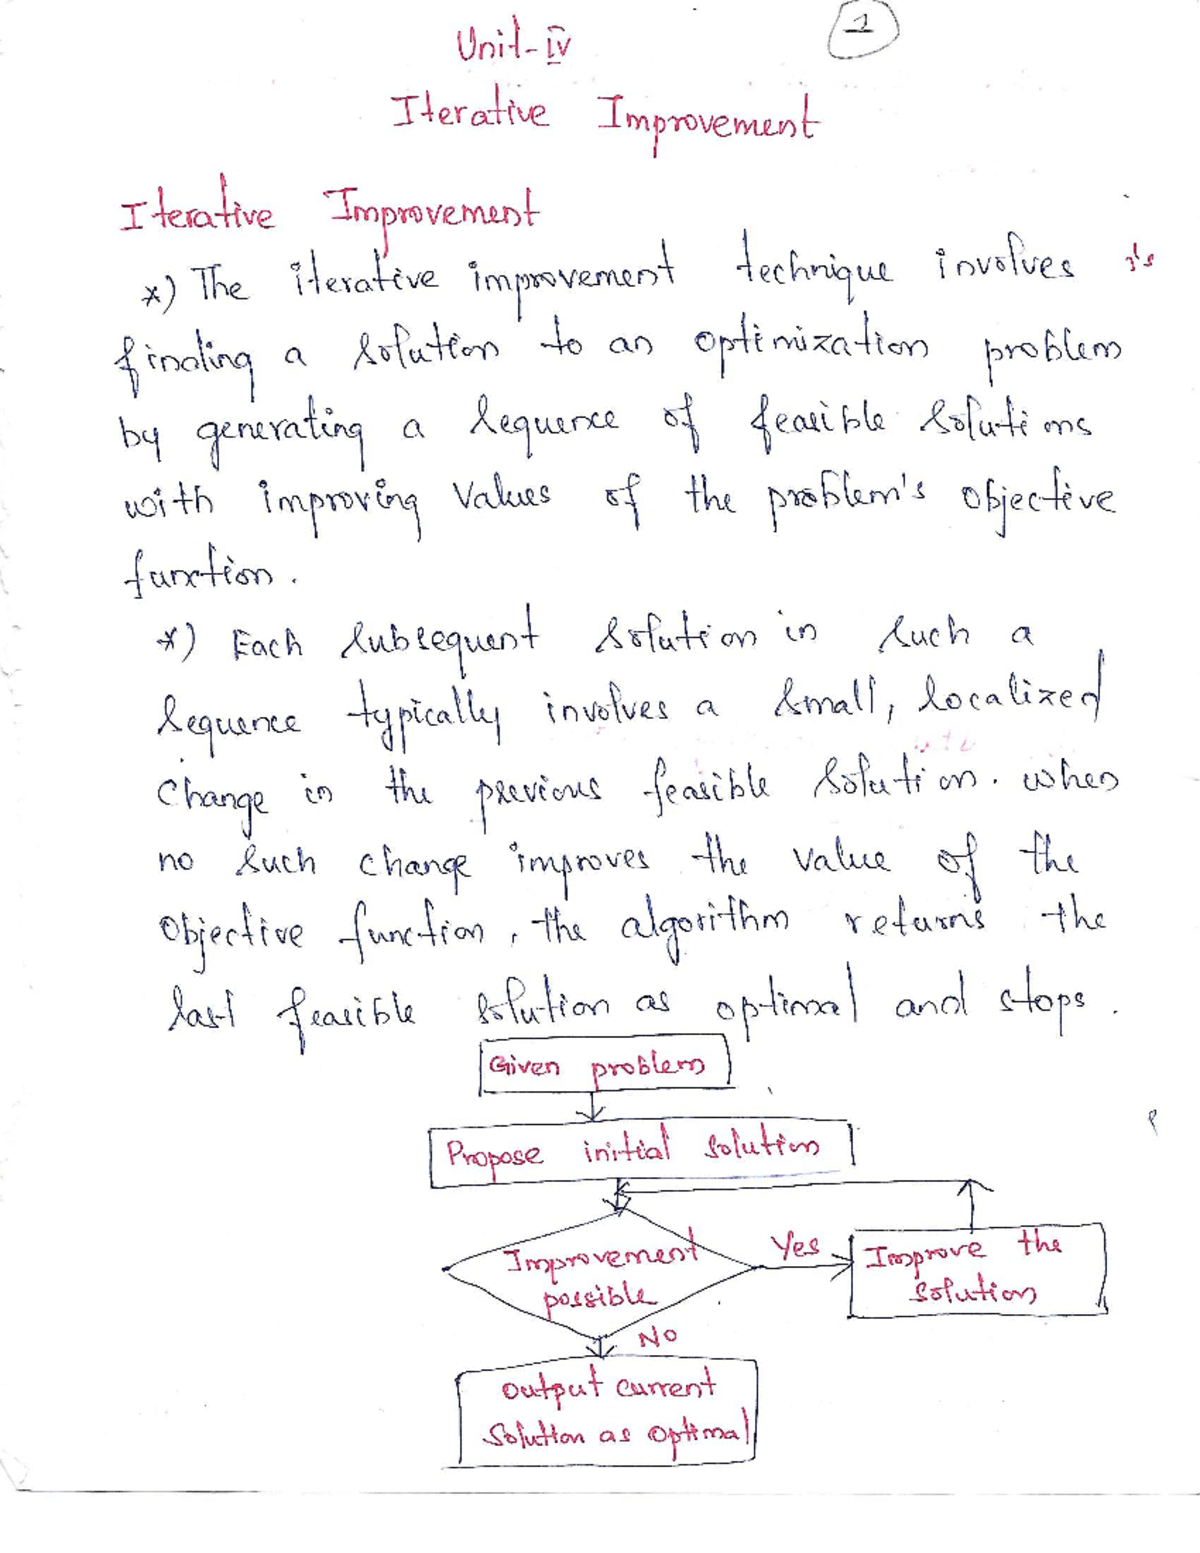 1
Unit-IV
Iterative Improvement
Iterative Improvement
*) The iterative improvement technique involves is
finding a solution to an optimization problem
by generating a sequence of feasible solutions
with improving values of the problem's objective
function.
*) Each subsequent solution in such a
sequence typically involves a small, localized
change in the previous feasible solution. when
no such change improves the value of the
objective function, the algorithm returns the
last feasible solution as optimal and stops.
Given problem
Propose initial solution
Improvement possible
Yes
Improve the
solution
No
Output current
solution as optimal